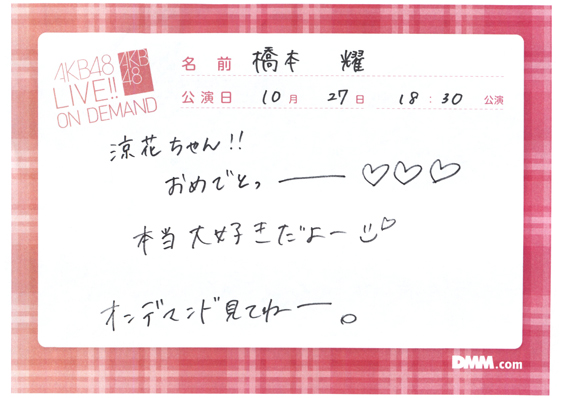 AKB48
LIVE!!
ON DEMAND
AKB
48
名前 橋本 耀
公演日 10月 27日 18:30 公演
涼花ちゃん!!
おめでとっ――♡♡♡
本当大好きだよー
オンデマンド見てねー。
DMM.com